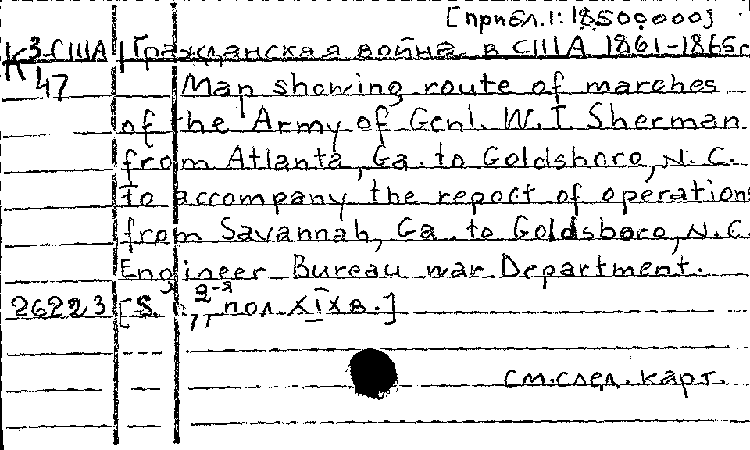 [прибл.1:1850000.0]
К 3-США Гражданская война в США 1861-1865г
47 Map showing route of marches
of the Army of Genl. W.T. Sherman
from Atlanta, Ga. to Goldsboro, N.C.
To accompany the report of operations
from Savannah, Ga. to Goldsboro, N.C.
Engineer Bureau war. Department.
26223 [S. 2-я пол XIX в.]
см.след.карт.